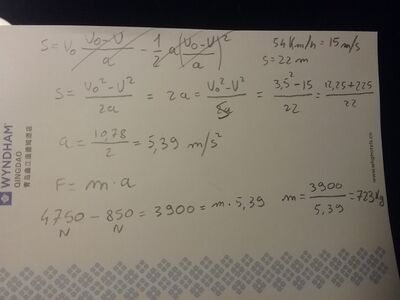 S = V₀ (V₀-V)/a - 1/2 a ((V₀-V)/a)²
54 Km/h = 15 m/s
S = 22 m
S = (V₀² - V²)/2a = 2a = (V₀² - V²)/S = (3,5² - 15)/22 = (12,25 + 225)/22
a = 10,78/2 = 5,39 m/s²
F = m · a
4750 - 850 = 3900 = m · 5,39 m = 3900/5,39 = 723 Kg
N N
WYNDHAM
QINGDAO